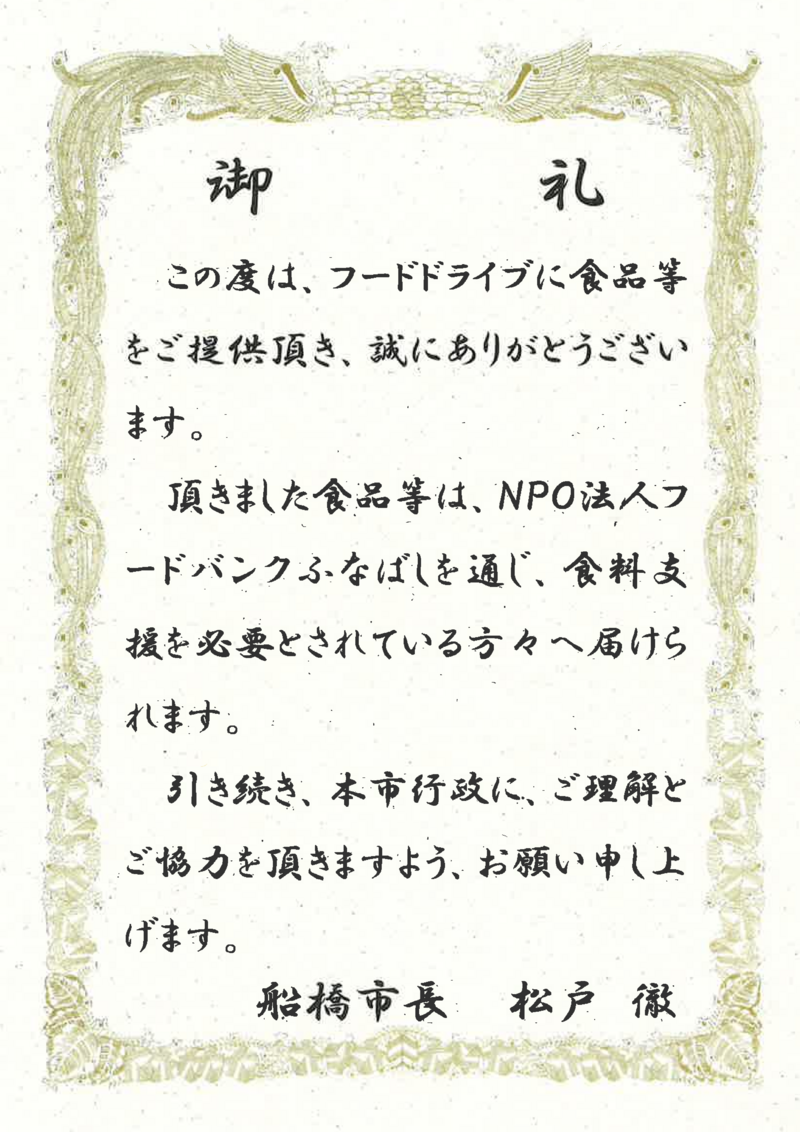 御　礼
　この度は、フードドライブに食品等
をご提供頂き、誠にありがとうござい
ます。
　頂きました食品等は、NPO法人フ
ードバンクふなばしを通じ、食料支
援を必要とされている方々へ届けら
れます。
　引き続き、本市行政に、ご理解と
ご協力を頂きますよう、お願い申し上
げます。
船橋市長　松戸　徹